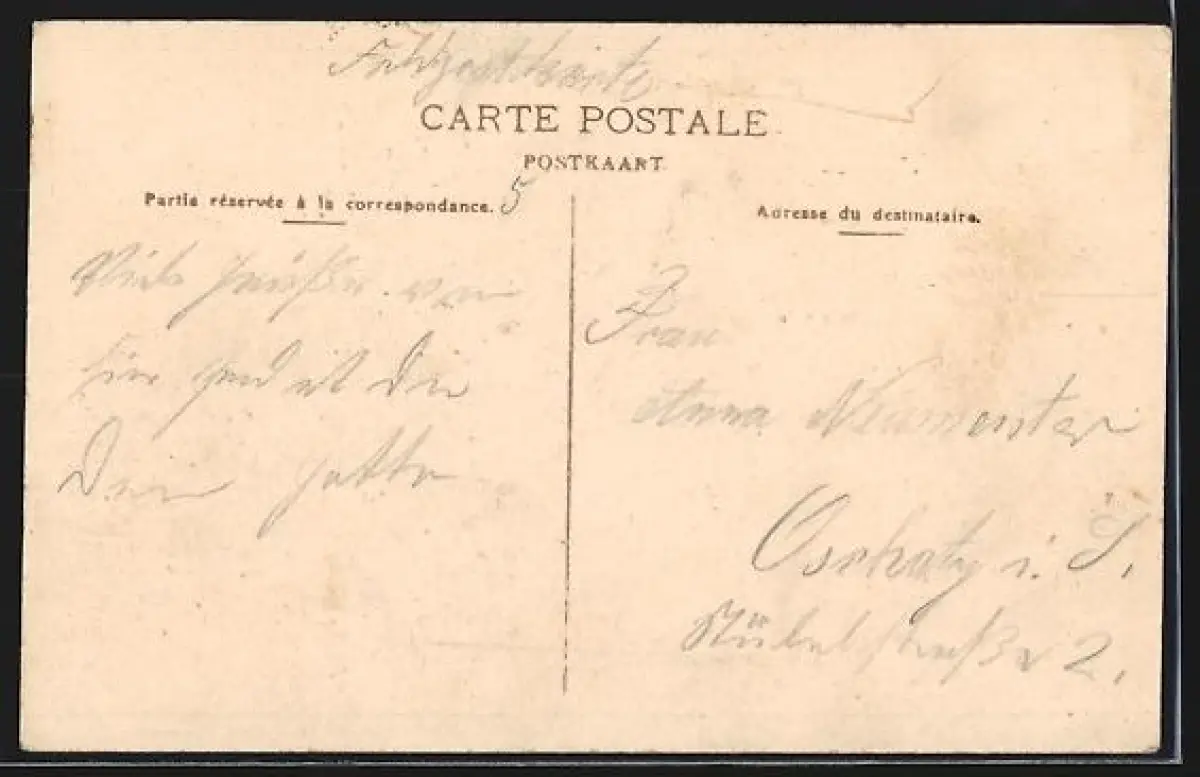 Feldpostkarte
CARTE POSTALE
POSTKAART
Partie réservée à la correspondance. 5
Adresse du destinataire.
Viele Grüße von
hier send et Dir
Dein Gatte
Frau
Anna Neumeister
Oschatz i. S.
Stübelstraße 2.